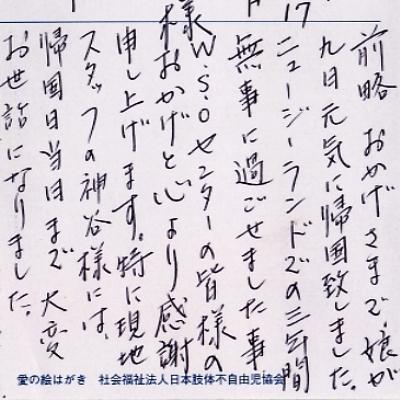 17
前略 おかげさまで、娘が
九日元気に帰国致しました。
ニュージーランドでの三年間
無事に過ごせました事
W.S.Oセンターの皆様の
様おかげと心より感謝
申し上げます。特に現地
スタッフの神谷様には、
帰国日当日まで大変
お世話になりました。
愛の絵はがき 社会福祉法人日本肢体不自由児協会